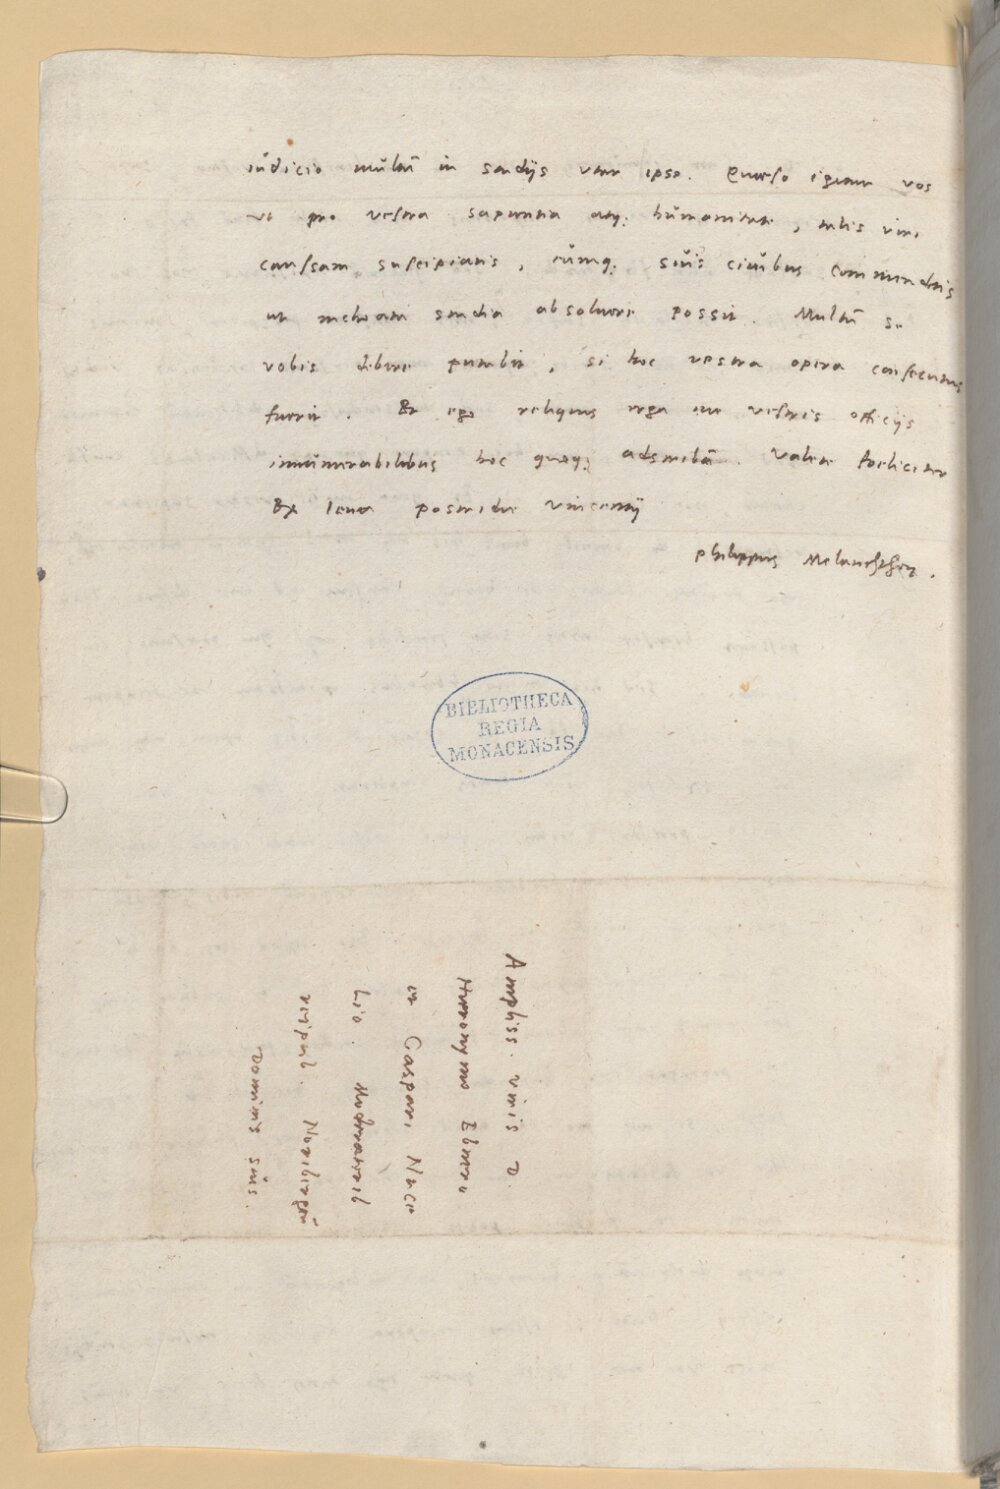 iudicio multū in studijs utar ipso. Quaeso igitur vos
ut pro vestra sapientia atq; humanitate, talis viri
caussam suscipiatis, eumq; suis ciuibus commendetis
ut inchoata studia absoluere possit. Multū se
vobis debere putabit, si hoc vestra opera consecutus
fuerit. Et ego reliquis erga me vestris officijs
innumerabilibus hoc quoq; adscribā. Valete foeliciter
Ex Iena postridie vincentij
Philippus Melanchthon.
BIBLIOTHECA
REGIA
MONACENSIS
Ampliss. viris D.
Hieronymo Ebnero
et Caspari Nuce
lio. Moderatorib
reipub. Noribergeñ
Dominis suis.